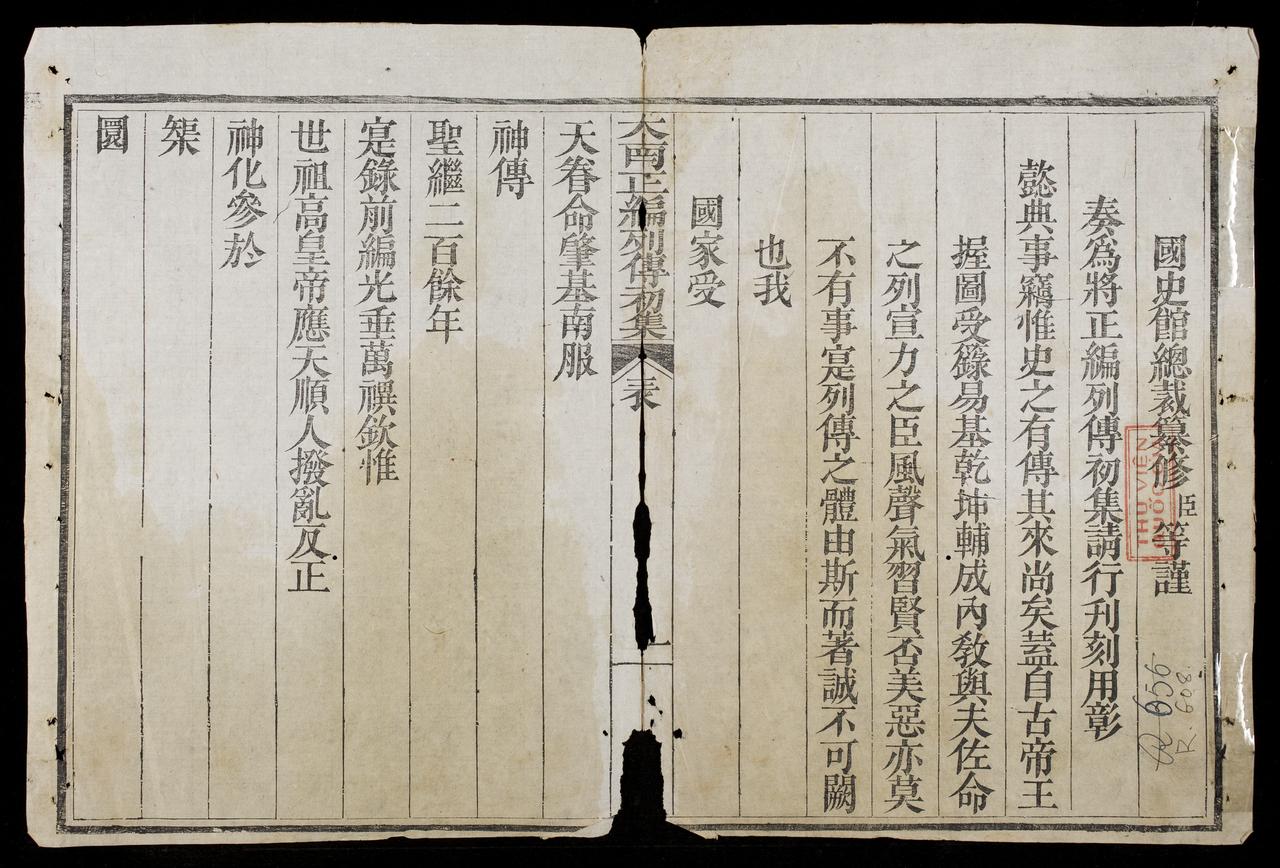 國史館總裁纂修臣等謹
奏爲將正編列傳初集請行刋刻用彰
懿典事竊惟史之有傳其來尚矣蓋自古帝王
握圖受籙易基乾坤輔成內敎與夫佐命
之列宣力之臣風聲氣習賢否美惡亦莫
不有事寔列傳之體由斯而著誠不可闕
也我
國家受
大南正編列傳初集 表 一
天眷命肇基南服
神傳
聖繼二百餘年
寔錄前編光垂萬禩欽惟
世祖高皇帝應天順人撥亂反正
神化參於
榘
圜
THƯ VIỆN
QUỐC
R 656
R. 608